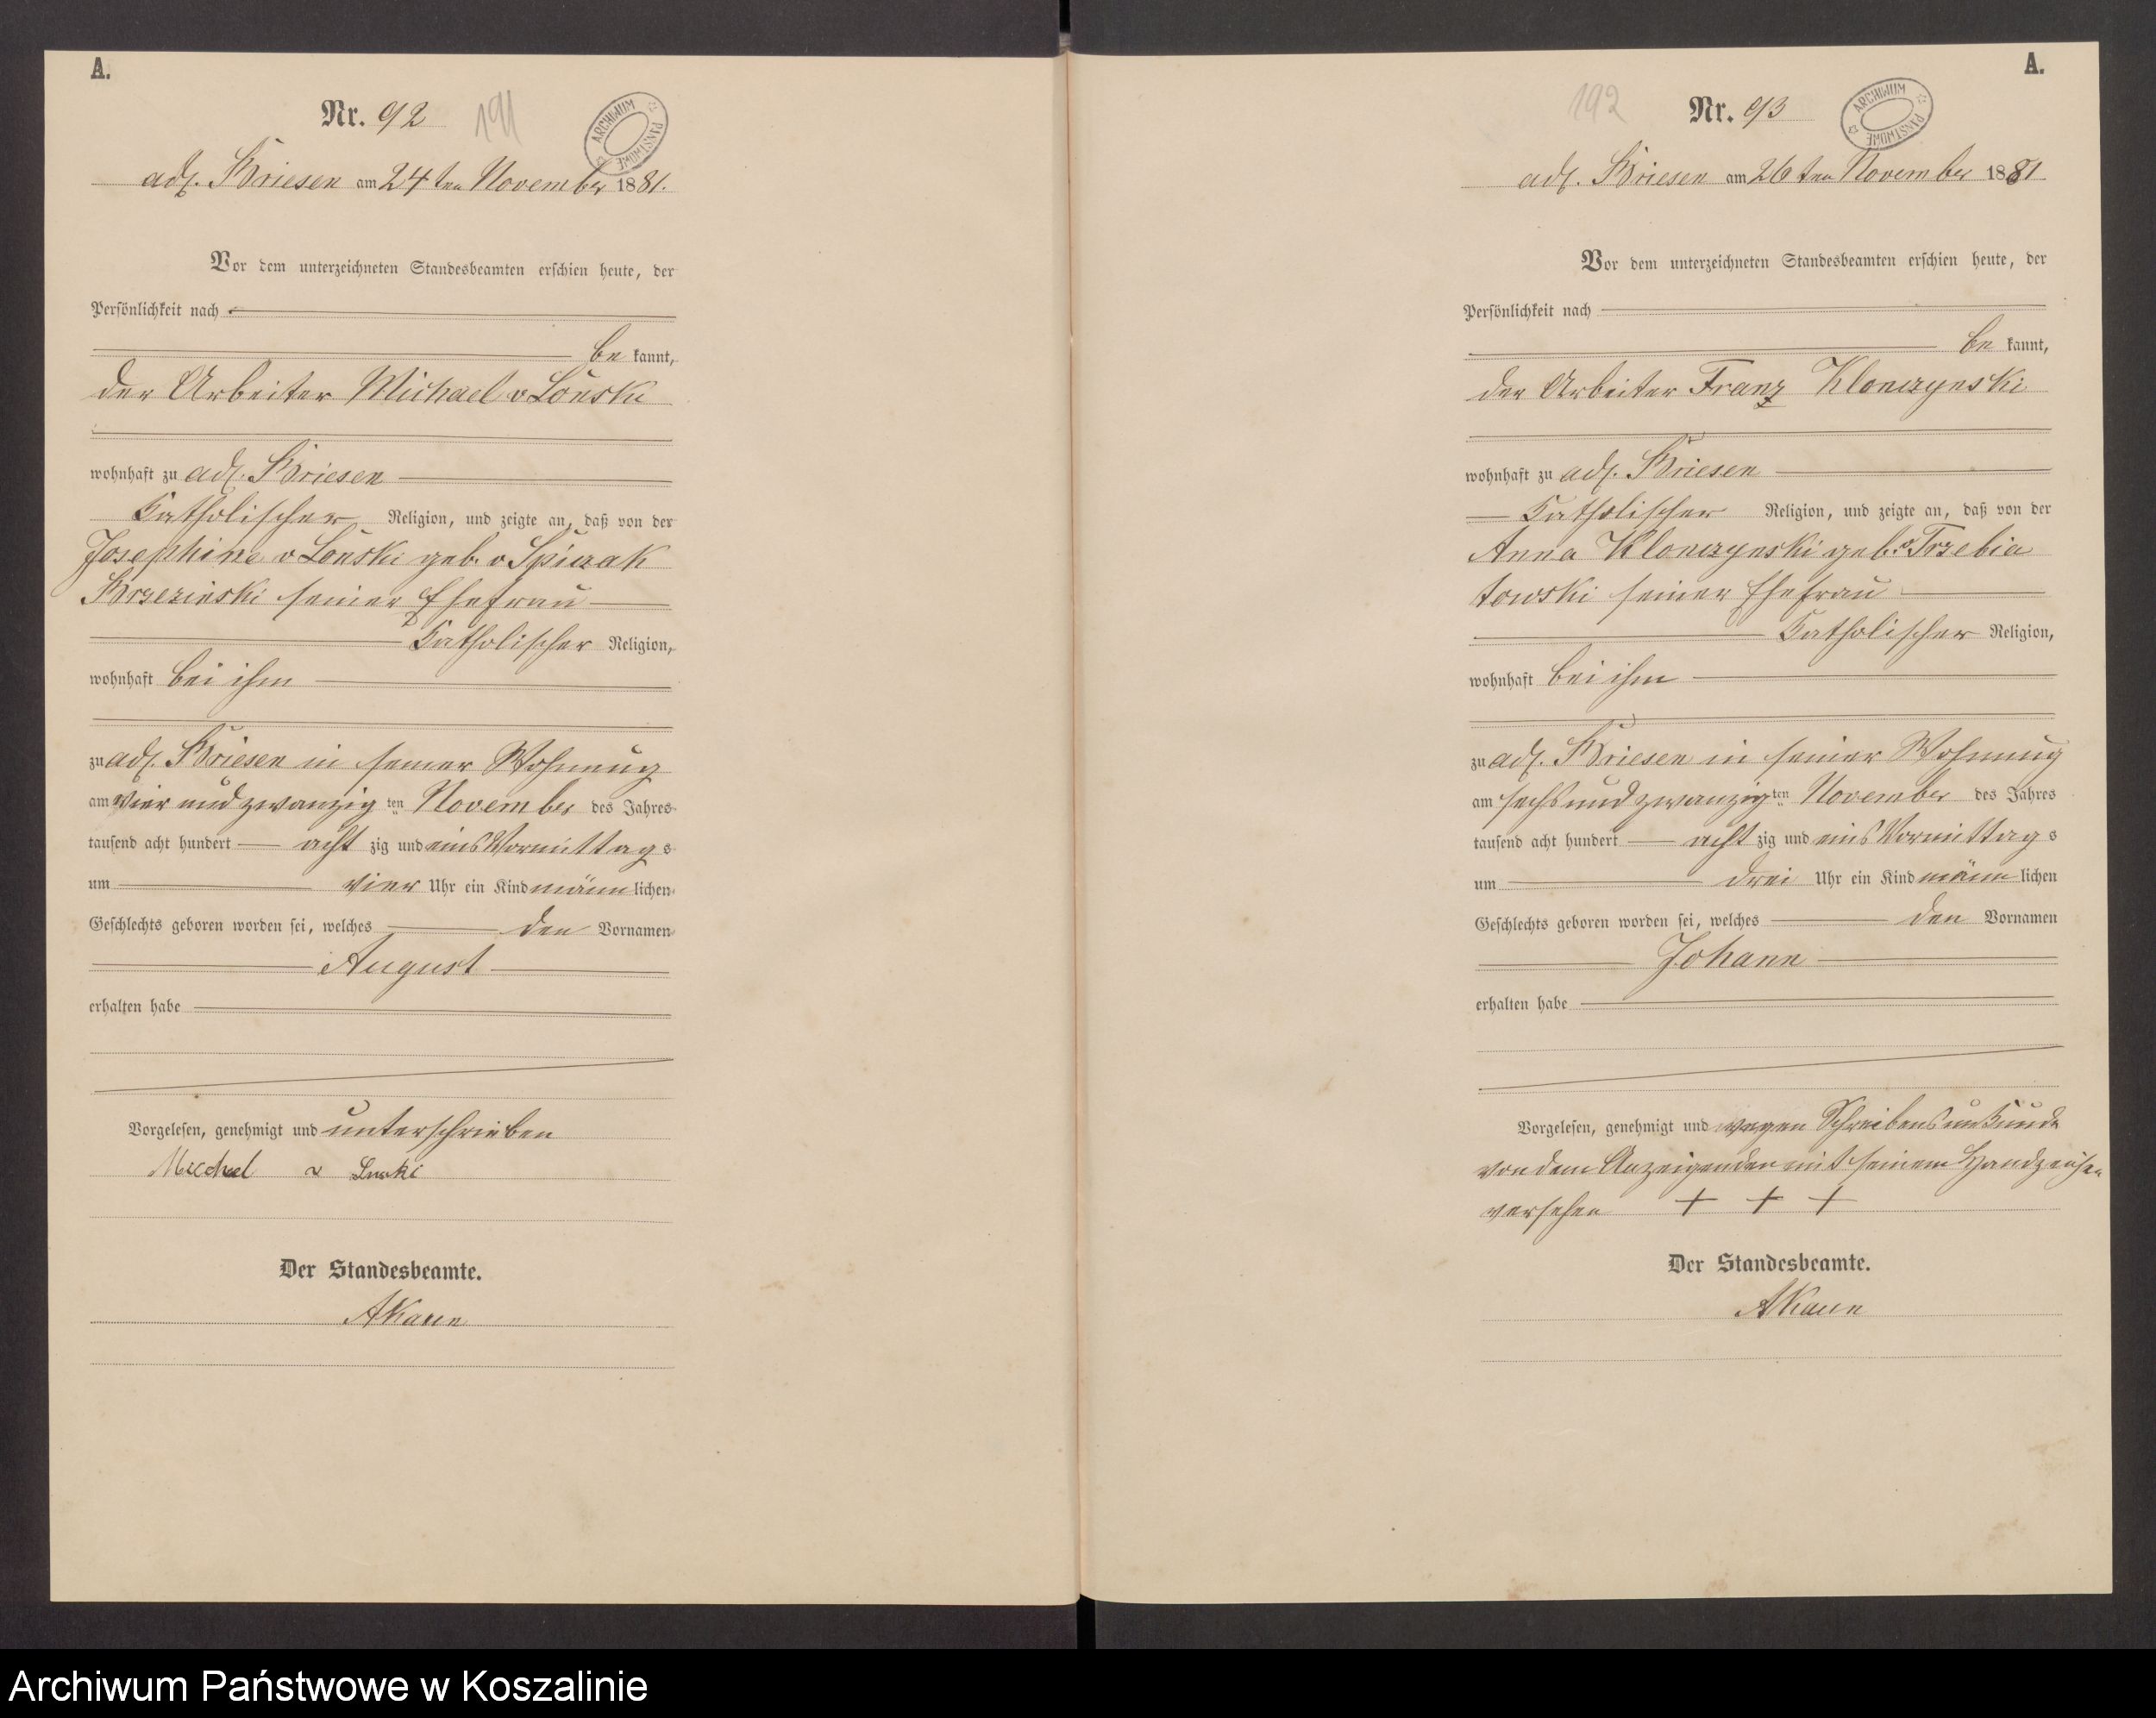 A.
Nr. 92 191
ARCHIWUM PAŃSTWOWE
adl. Briesen am 24ten November 1881.
Vor dem unterzeichneten Standesbeamten erschien heute, der
Persönlichkeit nach
be kannt,
der Arbeiter Michael v Lonski
wohnhaft zu adl. Briesen
Katholischer Religion, und zeigte an, daß von der
Josephine v Lonski geb. v Spiczak
Brzezinski seiner Ehefrau
Katholischer Religion,
wohnhaft bei ihm
zu adl. Briesen in seiner Wohnung
am vier und zwanzig ten November des Jahres
tausend acht hundert acht zig und eins Vormittags
um vier Uhr ein Kind männlichen
Geschlechts geboren worden sei, welches den Vornamen
August
erhalten habe
Vorgelesen, genehmigt und unterschrieben
Michael v
Der Standesbeamte.
A.
Nr. 93 192
ARCHIWUM PAŃSTWOWE
adl. Briesen am 26ten November 1881
Vor dem unterzeichneten Standesbeamten erschien heute, der
Persönlichkeit nach
be kannt,
der Arbeiter Franz Klonczynski
wohnhaft zu adl. Briesen
Katholischer Religion, und zeigte an, daß von der
Anna Klonczynski geb. v Trzebia
towski seiner Ehefrau
Katholischer Religion,
wohnhaft bei ihm
zu adl. Briesen in seiner Wohnung
am sechs und zwanzig ten November des Jahres
tausend acht hundert acht zig und eins Vormittags
um drei Uhr ein Kind männlichen
Geschlechts geboren worden sei, welches den Vornamen
Johann
erhalten habe
Vorgelesen, genehmigt und wegen Schreibensunkunde
von dem Anzeigenden mit seinem Handzeichen
versehen + + +
Der Standesbeamte.
Archiwum Państwowe w Koszalinie